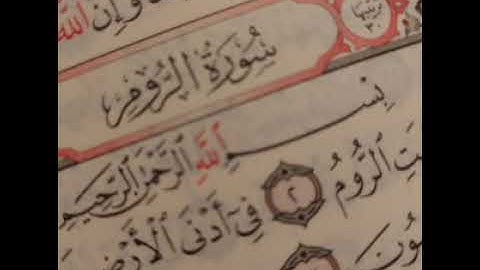 وَإِنَّ ٱللَّهَ
سُورَةُ ٱلرُّومِ
بِسْمِ ٱللَّهِ ٱلرَّحْمَٰنِ ٱلرَّحِيمِ
ٱلرُّومُ ٢ فِيٓ أَدْنَى ٱلْأَرْضِ